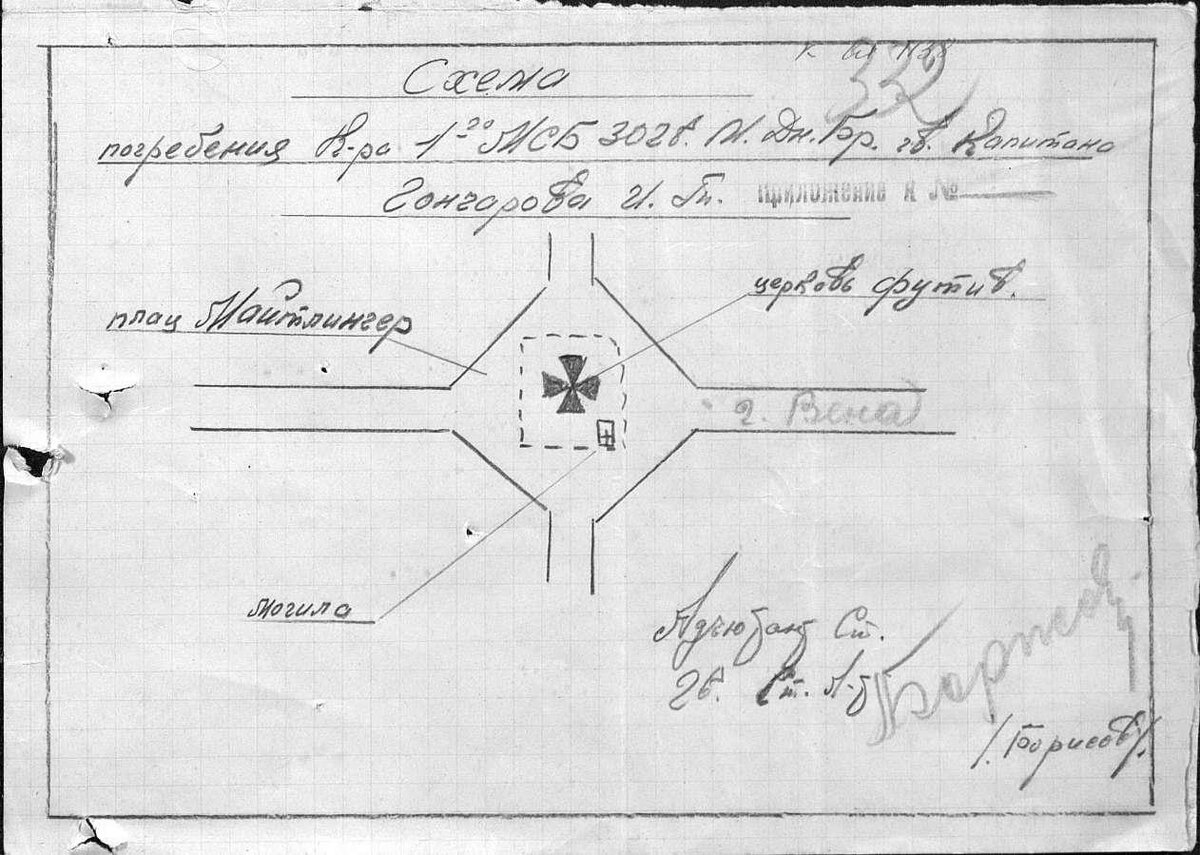 к вх 1158
332
Схема
погребения К-ра 1-го МСБ 30 гв. М. Дн. Бр. гв. Капитана
Гончарова И. Т.
Приложение к №
церковь футив.
плац Майтлингер
г. Вена
могила
Адъютант Ст.
Гв. Ст. Л-т
/Борисов/.